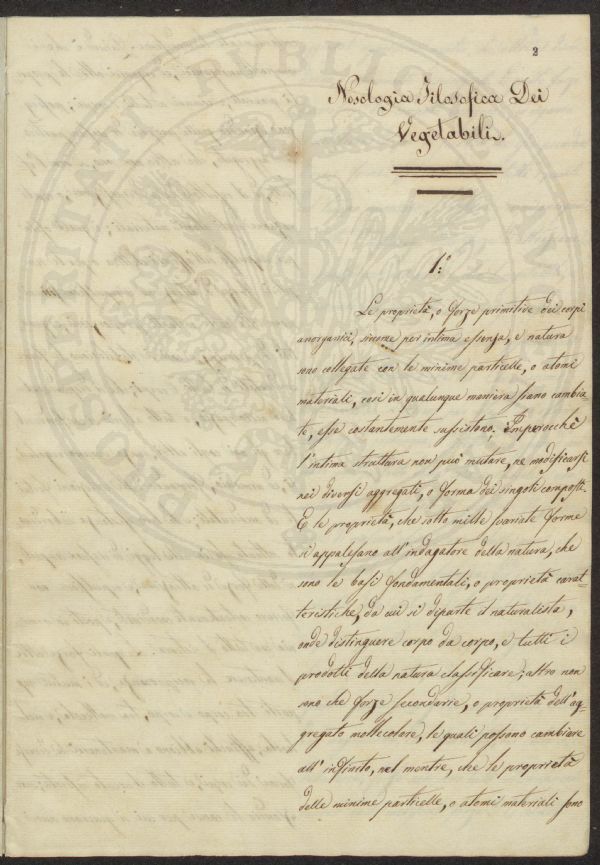 2
Nosologia Filosofica Dei
Vegetabili.
1.º
Le proprietà, o forze primitive dei corpi
anorganici, siccome per intima essenza, e natura
sono collegate con le minime particelle, o atomi
materiali, così in qualunque maniera siano cambia-
te, esse costantemente sussistono. Imperocchè
l'intima struttura non può mutare, ne modificarsi
nei diversi aggregati, o forma dei singoli composti.
E le proprietà, che sotto mille svariate forme
si appalesano all'indagatore della natura, che
sono le basi fondamentali, o proprietà carat-
teristiche, da cui si diparte il naturalista,
onde distinguere corpo da corpo, e tutti i
prodotti della natura classificare; altro non
sono che forze secondarie, o proprietà dell'ag-
gregato mollecolare, le quali possono cambiare
all'infinito, nel mentre, che le proprietà
delle minime particelle, o atomi materiali sono
PROSPERITATI PUBLICAE AVG